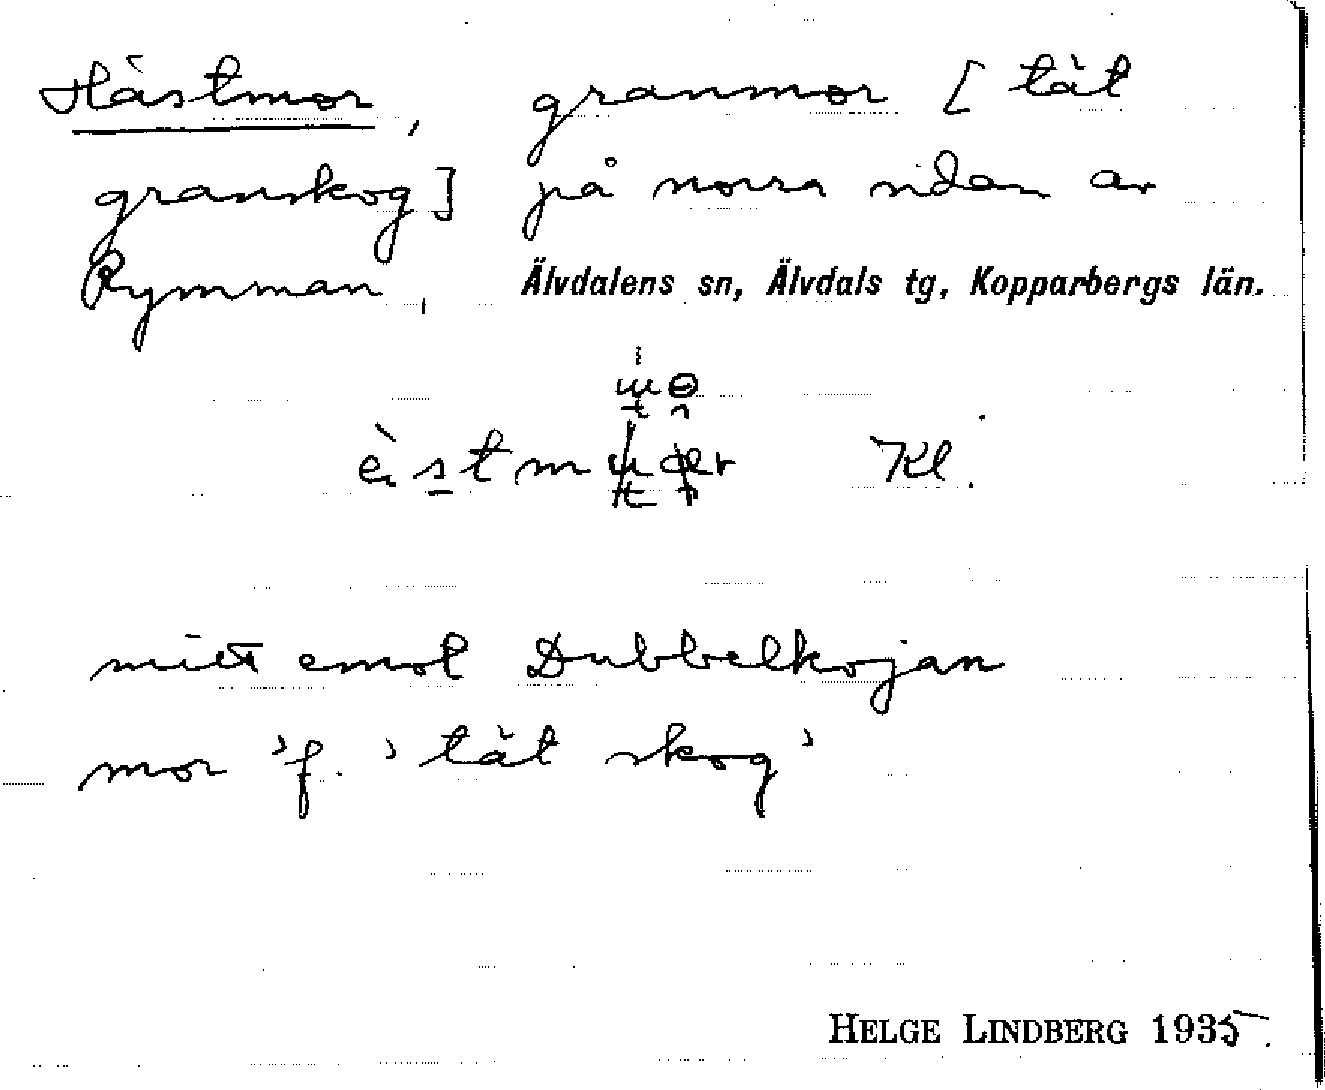 Hästmor, granmor [tät
granskog] på norra sidan av
Rymman, Älvdalens sn, Älvdals tg, Kopparbergs län.
Kl.
mitt emot Dubbelkojan
mor 'f. 'tät skog'
HELGE LINDBERG 1935.